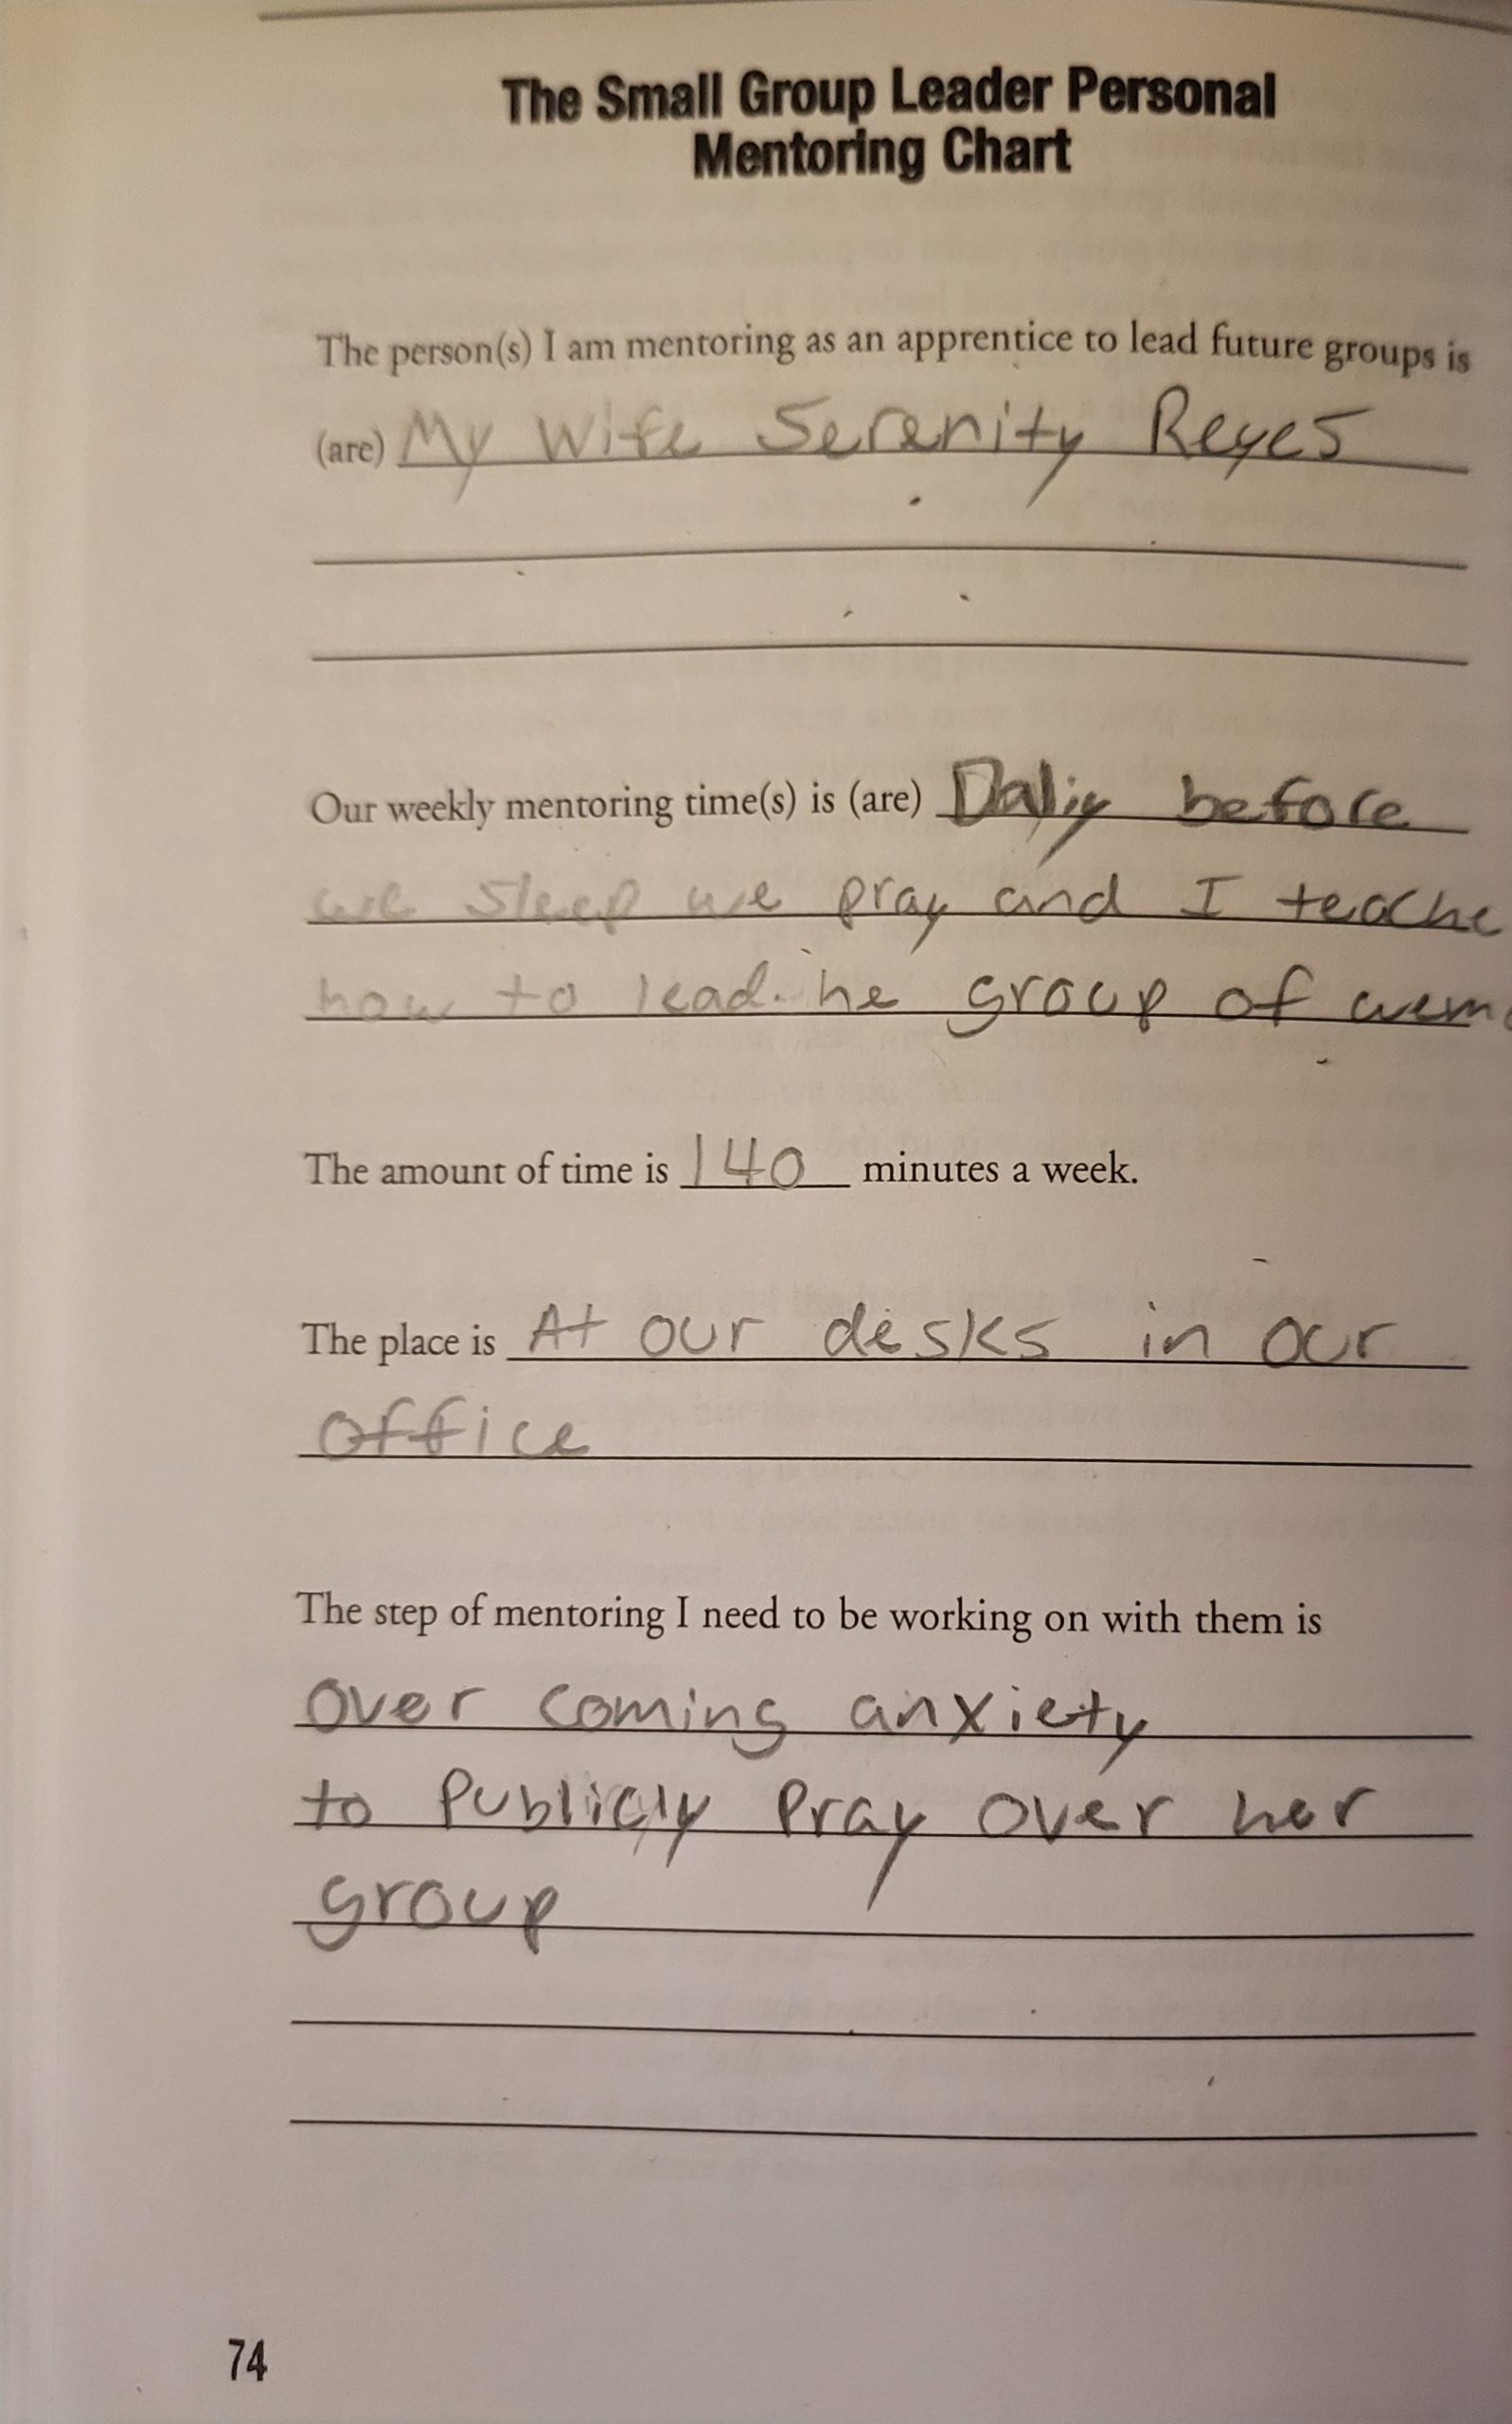 The Small Group Leader Personal
Mentoring Chart
The person(s) I am mentoring as an apprentice to lead future groups is
(are) My wife Serenity Reyes
Our weekly mentoring time(s) is (are) Daliy before
we sleep we pray and I teache
how to lead. he group of wem
The amount of time is 140 minutes a week.
The place is At our desks in our
office
The step of mentoring I need to be working on with them is
over coming anxiety
to Publicly Pray over her
group
74